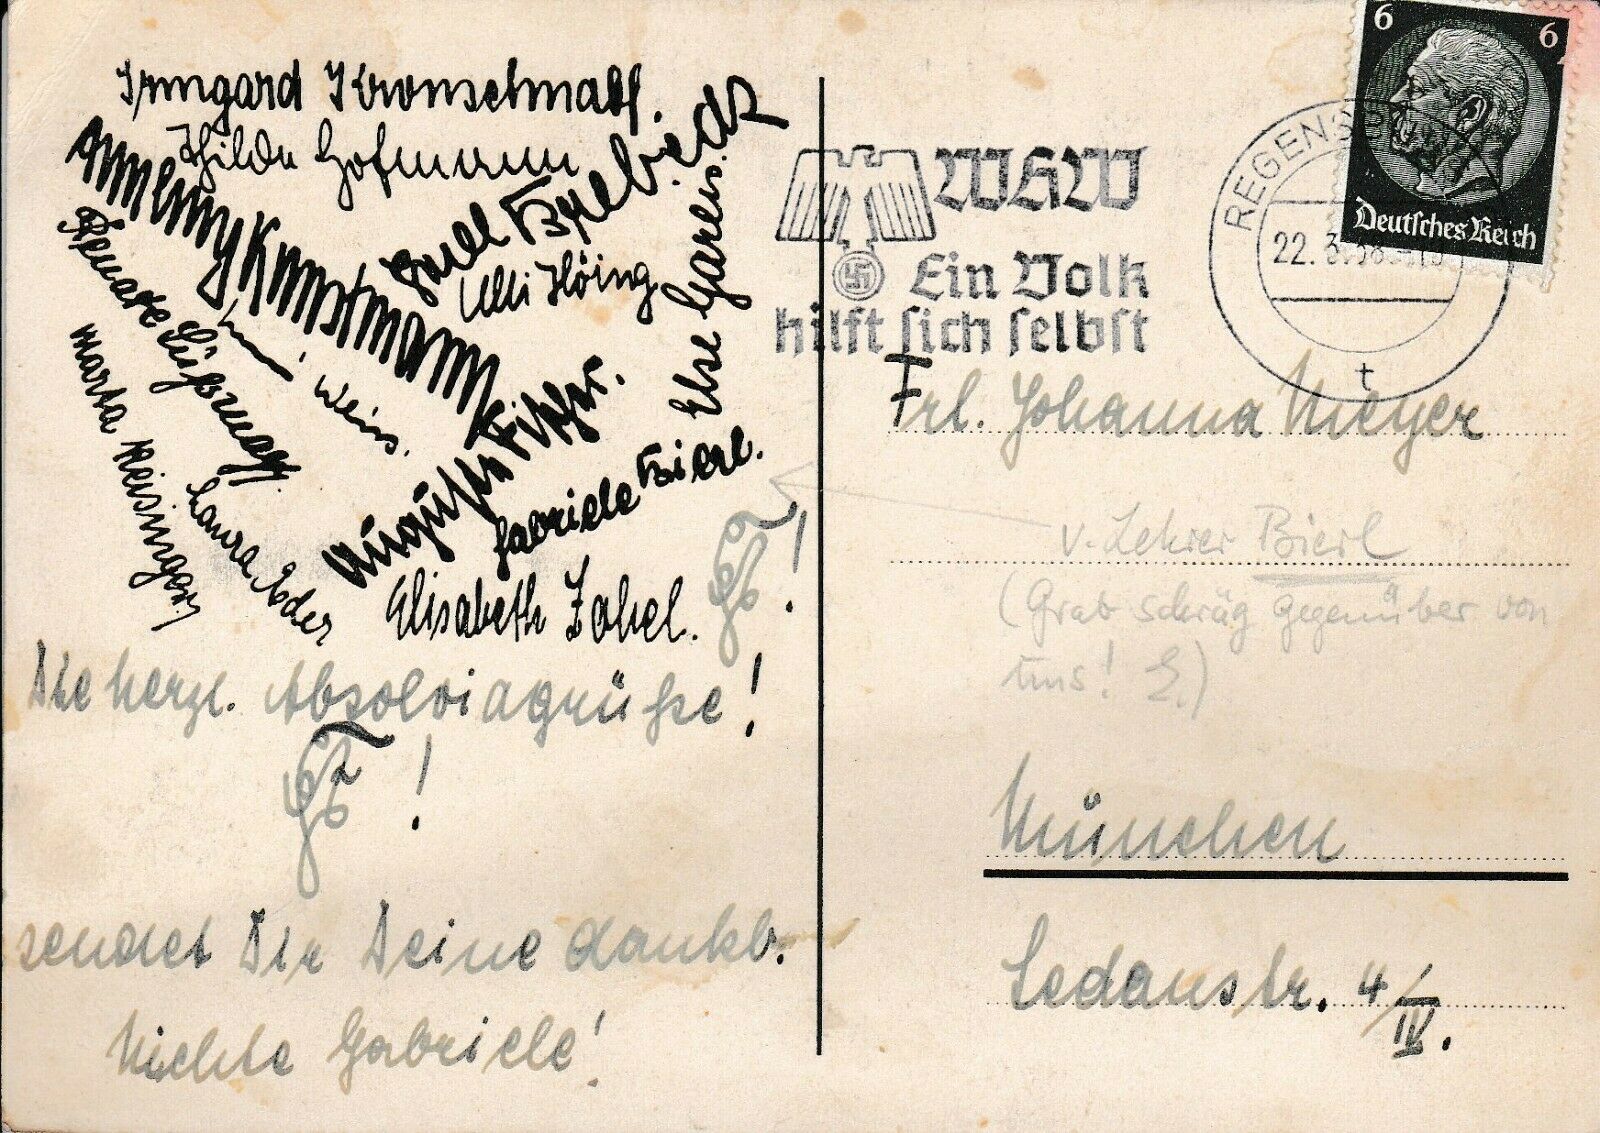 Irmgard Kronschnabl.
Hilde Hofmann
Annelury Kunstmann
Friebedz
Uli Höing
Else Gareis.
Renate Süßmagg.
Weiss.
Marta Reisinger.
Laura Eder
Auguste Fischer.
Gabriele Bierl.
Elisabeth Zahel.
!
Die herzl. Absolviagrüße!
!
sendet Dir Deine dankb.
Nichte Gabriele!
6
6
Deutsches Reich
REGENSBURG
22. 3. 38
t
WHW
Ein Volk
hilft sich selbst
Frl. Johanna Meyer
v. Lehrer Bierl
(Grab schräg gegenüber von
uns! E.)
München
Sedanstr. 4/IV.